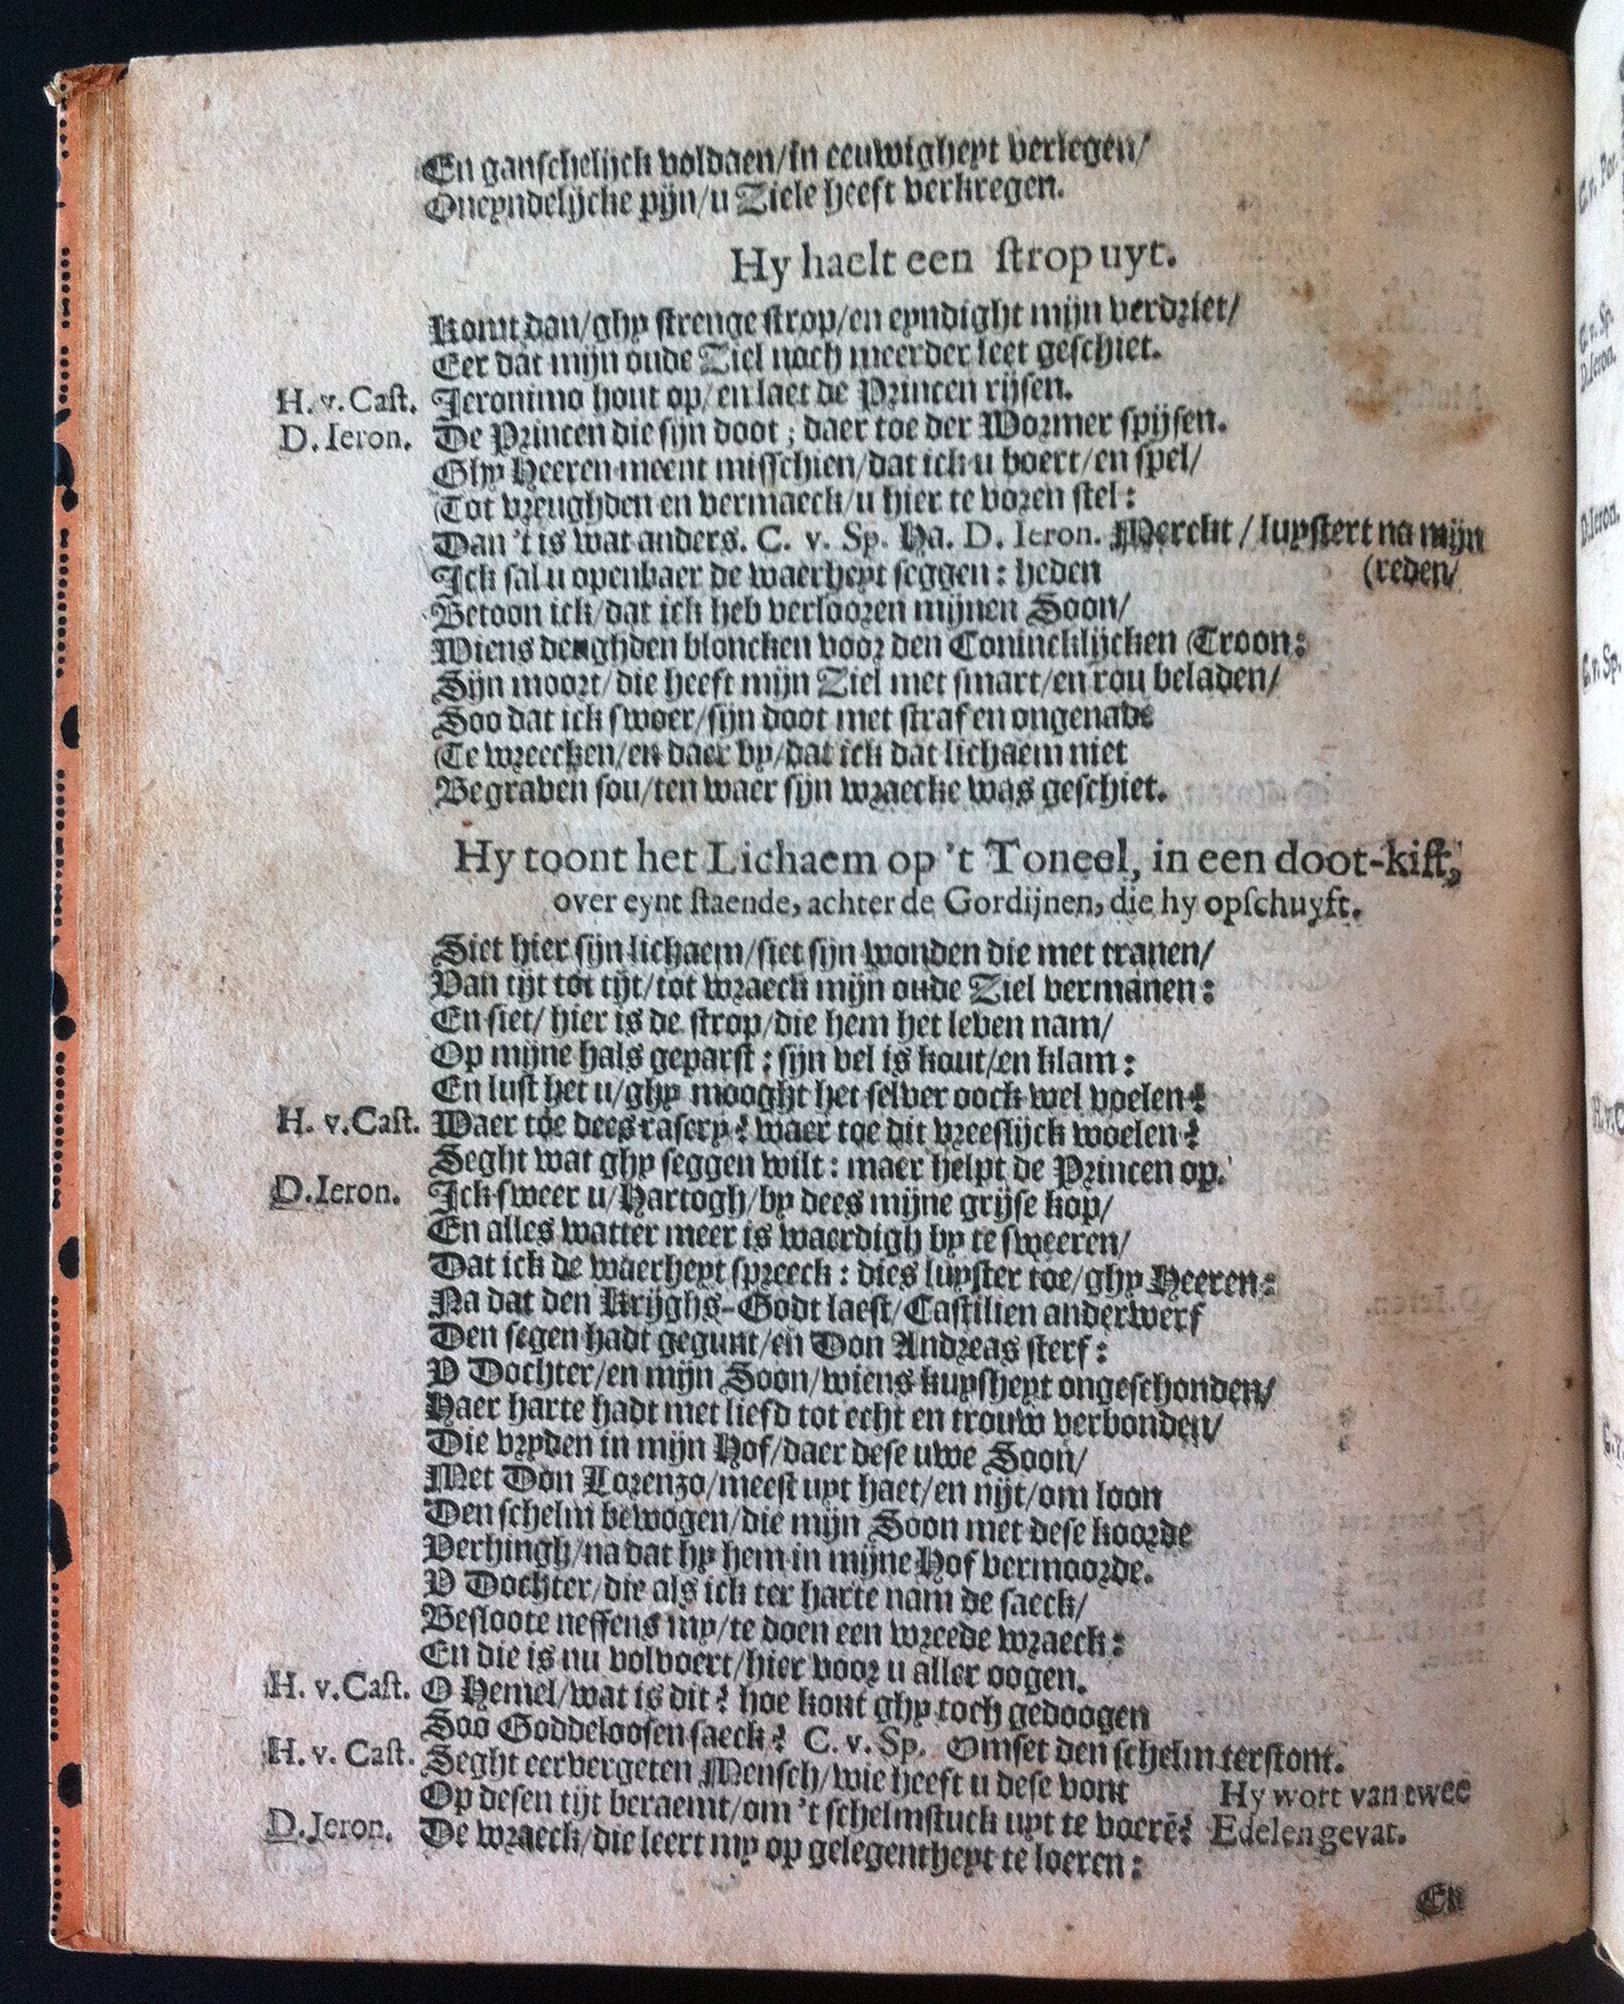 En ganschelijck voldaen/in eeuwigheyt verlegen/
Oneyndelijcke pijn/u Ziele heeft verkregen.
Hy haelt een strop uyt.
Komt dan/ghy strenge strop/en eyndight mijn verdriet/
Eer dat mijn oude Ziel noch meerder leet geschiet.
H. v. Cast. Jeronimo hout op/en laet de Princen rijsen.
D. Ieron. De Princen die sijn doot; daer toe der Wormer spijsen.
Ghy Heeren meent misschien/dat ick u boert/en spel/
Tot vreughden en vermaeck/u hier te voren stel:
Dan 't is wat anders. C. v. Sp. Ha. D. Ieron. Merckt / luystert na mijn
Ick sal u openbaer de waerheyt seggen: heden (reden/
Betoon ick/dat ick heb verlooren mijnen Soon/
Wiens deughden bloncken voor den Conincklijcken Troon:
Sijn moort/die heeft mijn Ziel met smart/en rou beladen/
Soo dat ick swoer/sijn doot met straf en ongenade
Te wreecken/en daer by/dat ick dat lichaem niet
Begraven sou/ten waer sijn wraecke was geschiet.
Hy toont het Lichaem op 't Toneel, in een doot-kist,
over eynt staende, achter de Gordijnen, die hy opschuyft.
Siet hier sijn lichaem/siet sijn wonden die met tranen/
Van tijt tot tijt/tot wraeck mijn oude Ziel vermanen:
En siet/hier is de strop/die hem het leven nam/
Op mijne hals geparst; sijn vel is kout/en klam:
En lust het u/ghy mooght het selver oock wel voelen?
H. v. Cast. Waer toe dees rasery? waer toe dit vreeslijck woelen?
Seght wat ghy seggen wilt: maer helpt de Princen op.
D. Ieron. Ick sweer u/Hartogh/by dees mijne grijse kop/
En alles watter meer is waerdigh by te sweeren/
Dat ick de waerheyt spreeck: dies luyster toe/ghy Heeren:
Na dat den Krijghs-Godt laest/Castilien anderwerf
Den segen hadt gegunt/en Don Andreas sterf:
V Dochter/en mijn Soon/wiens kuysheyt ongeschonden/
Haer harte hadt met liefd tot echt en trouw verbonden/
Die vryden in mijn Hof/daer dese uwe Soon/
Met Don Lorenzo/meest uyt haet/en nijt/om loon
Den schelm bewogen/die mijn Soon met dese koorde
Verhingh/na dat hy hem in mijne Hof vermoorde.
V Dochter/die als ick ter harte nam de saeck/
Besloote neffens my/te doen een wreede wraeck:
En die is nu volvoert/hier voor u aller oogen.
H. v. Cast. O Hemel/wat is dit? hoe kont ghy toch gedoogen
Soo Goddeloosen saeck? C. v. Sp. Omset den schelm terstont.
H. v. Cast. Seght eervergeten Mensch/wie heeft u dese vont Hy wort van twee
Op desen tijt beraemt/om 't schelmstuck uyt te voerē? Edelen gevat.
D. Jeron. De wraeck/die leert my op gelegentheyt te loeren:
En